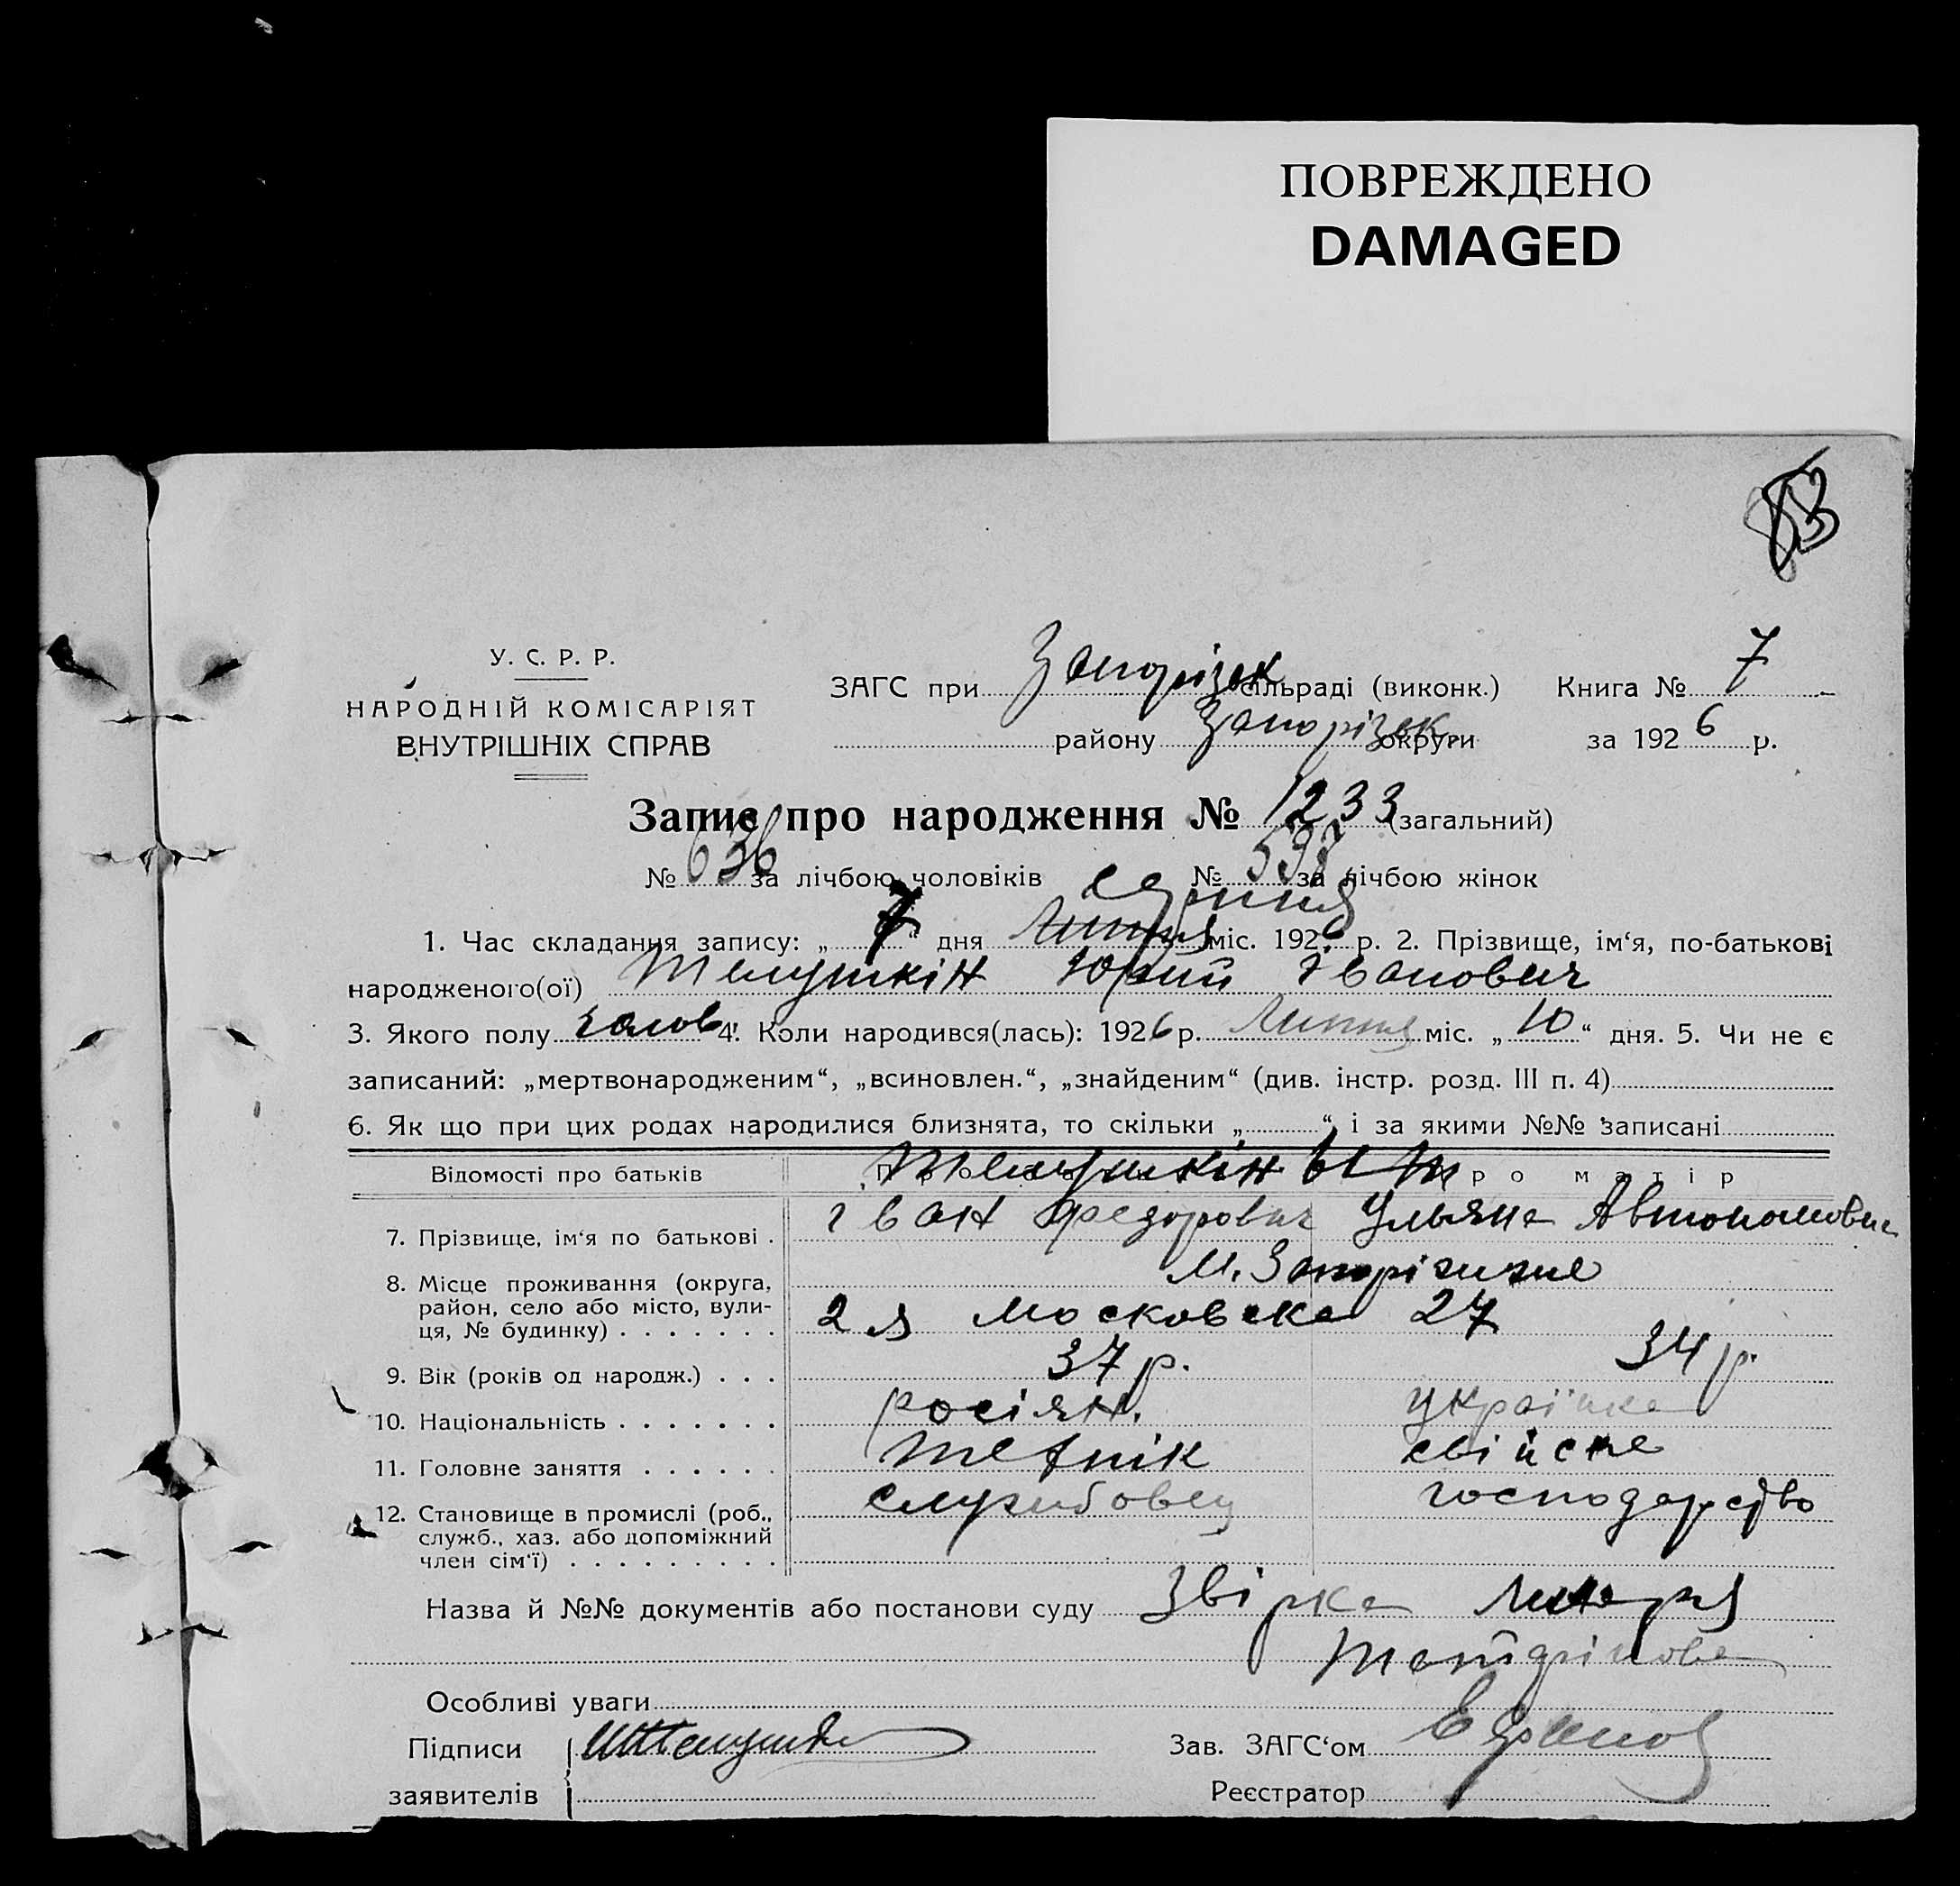 ПОВРЕЖДЕНО
DAMAGED
У. С. Р. Р.
НАРОДНІЙ КОМІСАРІЯТ
ВНУТРІШНІХ СПРАВ
ЗАГС при Запорізьк сільраді (виконк.) Книга № 7
району Запорізьк. округи за 1926 р.
Запис про народження № 1233 (загальний)
№ 636 за лічбою чоловіків № 597 за лічбою жінок
серпня
1. Час складання запису: „ 7 “ дня Липня міс. 1926 р. 2. Прізвище, ім‘я, по-батькові
народженого(ої) Телушкін Юрій Іванович
3. Якого полу чолов. 4. Коли народився(лась): 1926 р. Липня міс. „ 10 “ дня. 5. Чи не є
записаний: „мертвонародженим“, „всиновлен.“, „знайденим“ (див. інстр. розд. III п. 4)
6. Як що при цих родах народилися близнята, то скільки „ “ і за якими №№ записані
Відомості про батьків Телушкін ро матір
7. Прізвище, ім‘я по батькові . Іван Федорович Ульяна Автономовна
8. Місце проживання (округа, м. Запоріжжя
район, село або місто, вули-
ця, № будинку) . . . . . . . 2я Московська 27
9. Вік (років од народж.) . . . 37 р. 34 р.
10. Національність . . . . . . . росіян. українка
11. Головне заняття . . . . . . технік свійске
12. Становище в промислі (роб., службовець господарство
служб., хаз. або допоміжний
член сім‘ї) . . . . . . . . .
Назва й №№ документів або постанови суду Звірка Лікаря
Особливі уваги
Підписи Зав. ЗАГС‘ом
заявителів Реєстратор